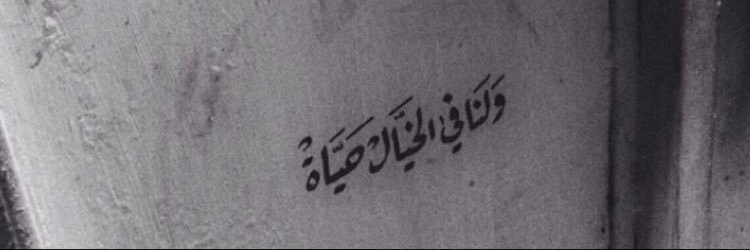 وَلَنَا فِي الخَيَّالْ حَيَّاةْ